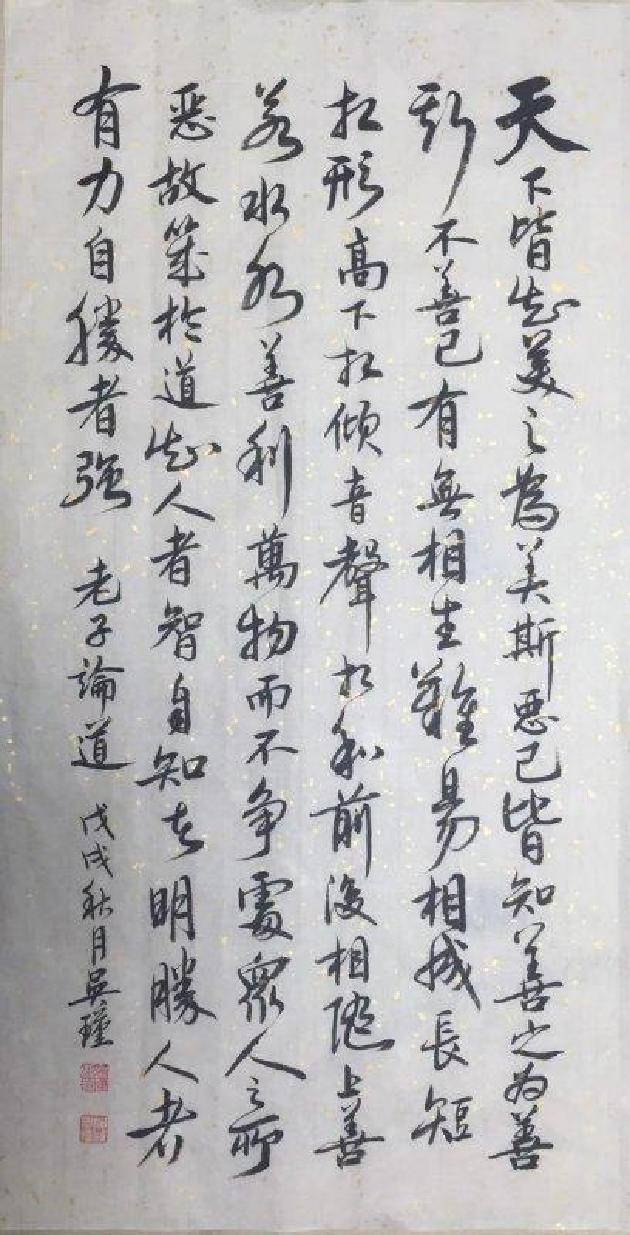 天下皆知美之為美斯惡已皆知善之为善
斯不善已有無相生難易相成長短
相形高下相傾音聲相和前後相随上善
若水水善利萬物而不争處衆人之所
惡故幾於道知人者智自知者明勝人者
有力自勝者强 老子論道 戊戌秋月吴瑾